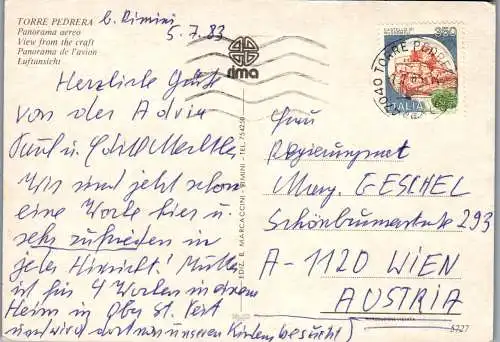 TORRE PEDRERA b. Rimini
Panorama aereo 5.7.83
View from the craft
Panorama de l'avion
Luftansicht
Herzliche Grüße
von der Adria
Paul u. Edith
Wir sind jetzt schon
eine Woche hier u.
sehr zufrieden in
jeder Hinsicht! Mutter
ist für 4 Wochen in einem
Heim in Oby St. Veit
und wird dort von unseren Kindern besucht
EDIZ. B. MARCACCINI - RIMINI - TEL. 754250
dma
350
ITALIA
TORRE PEDRERA
Frau
Regierungsrat
Marg. GESCHEL
Schönbrunnerstraße 293
A-1120 WIEN
AUSTRIA
5727